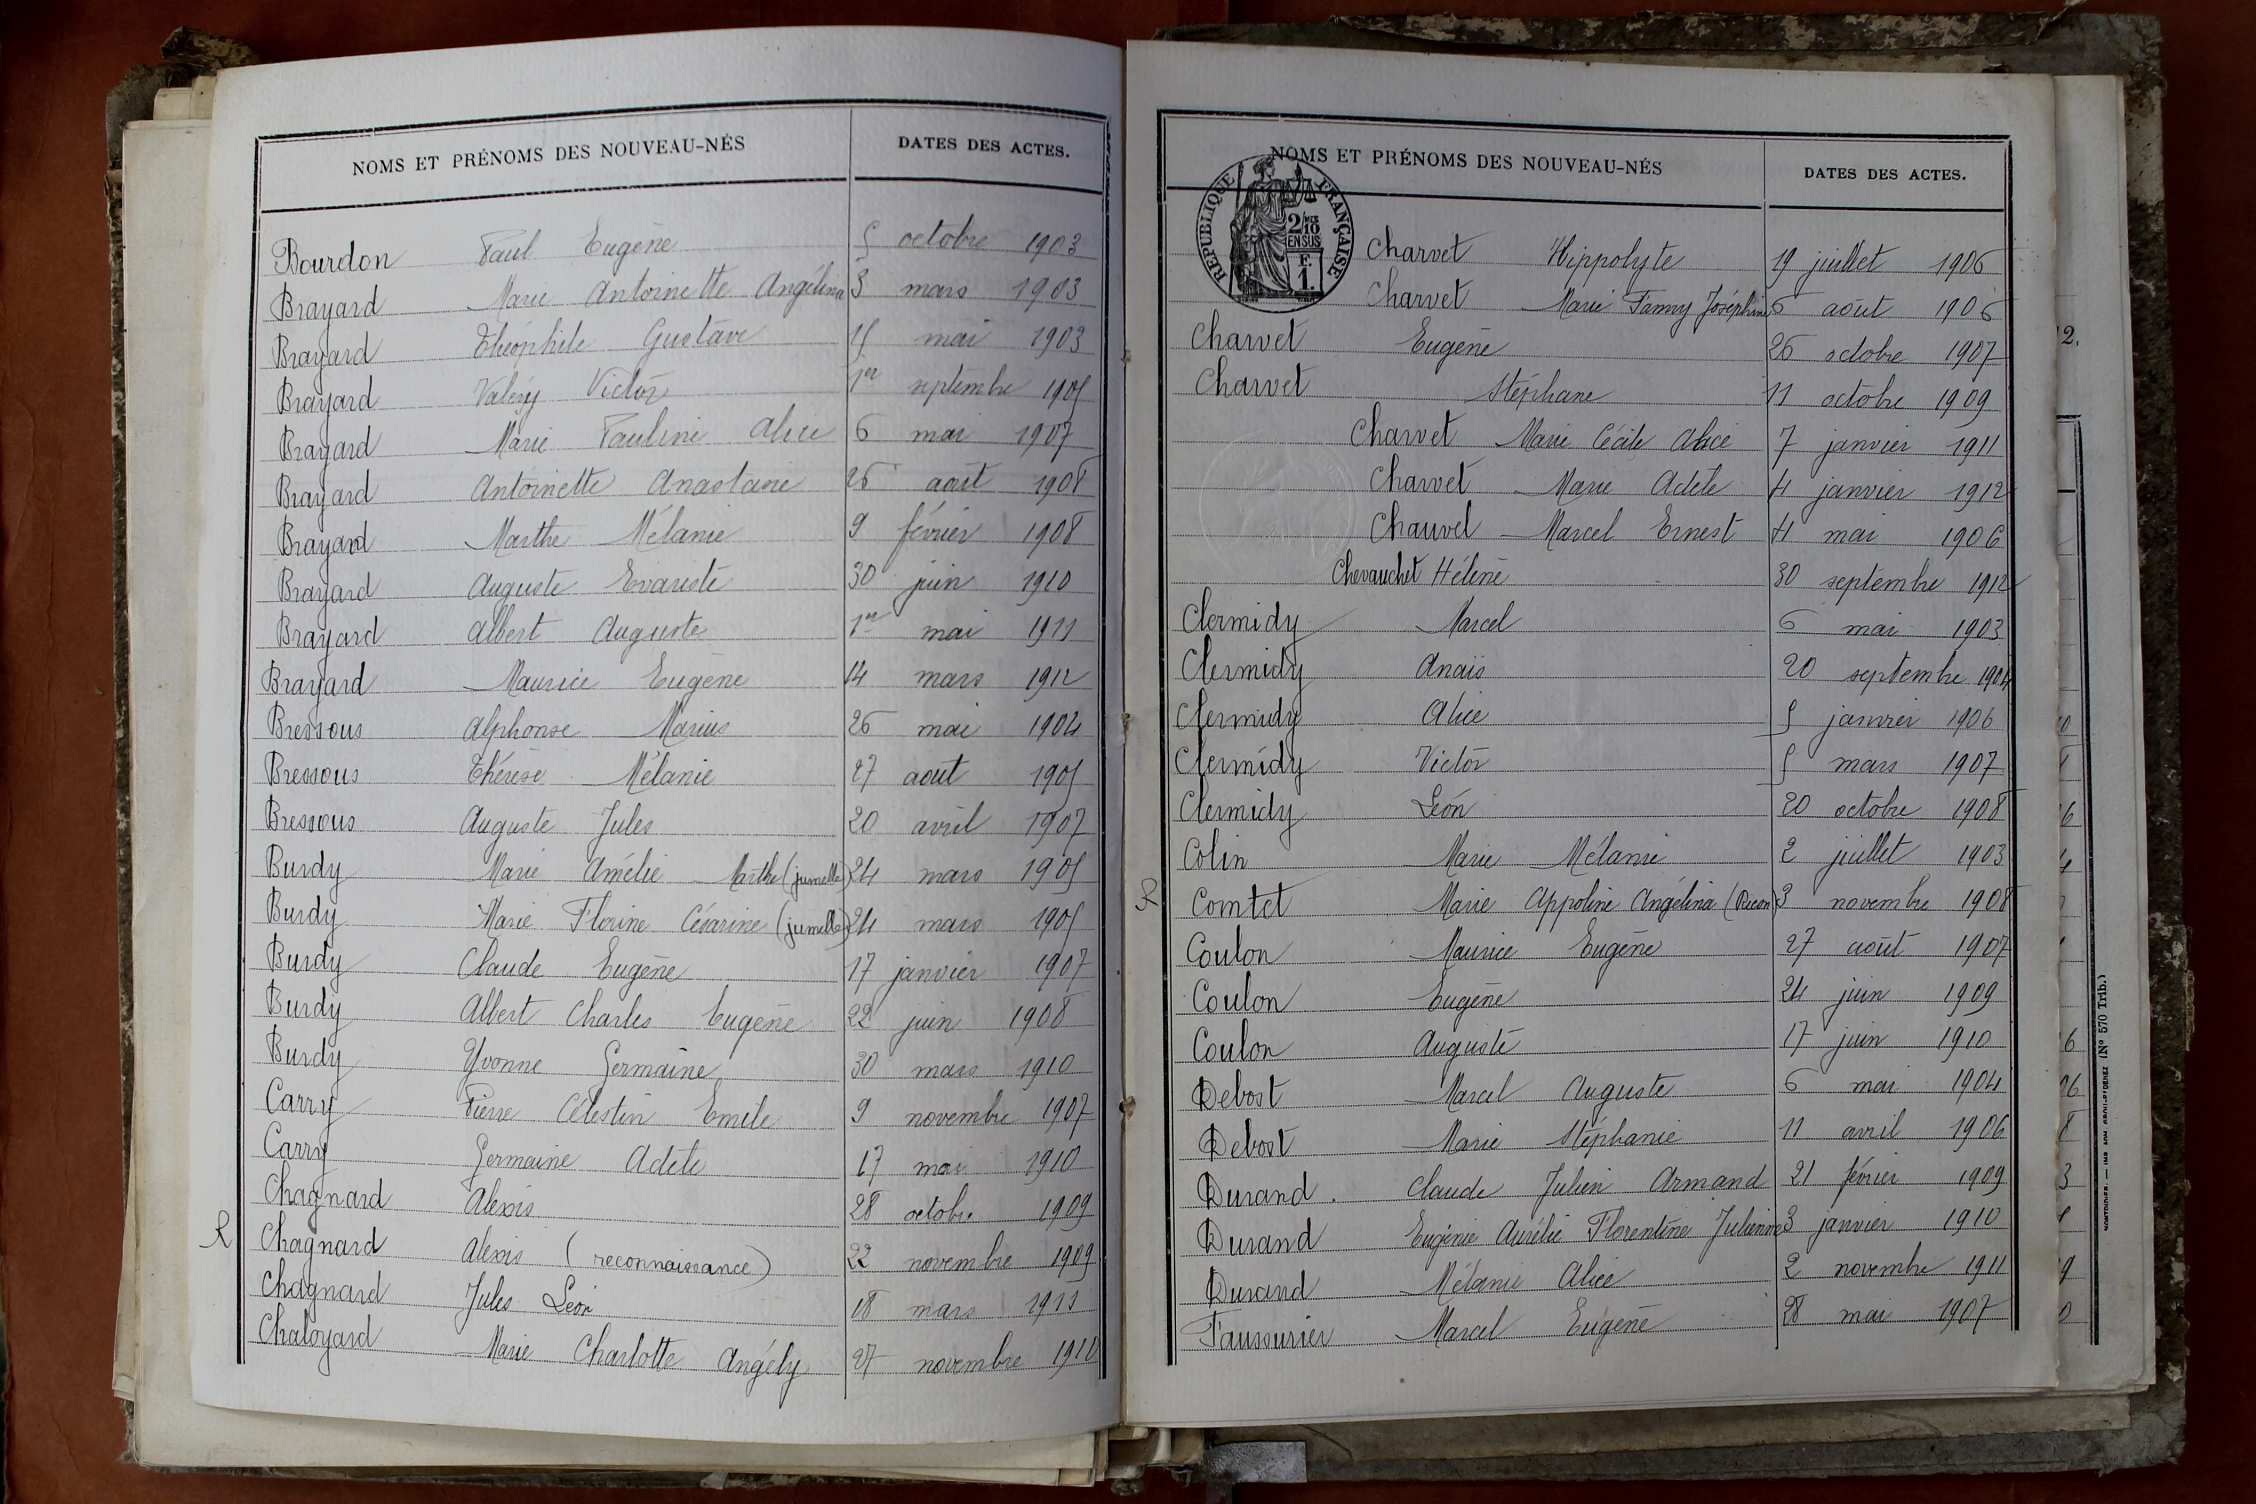 NOMS ET PRÉNOMS DES NOUVEAU-NÉS DATES DES ACTES.
Bourdon Paul Eugène 5 octobre 1903
Brayard Marie Antoinette Angélina 3 mars 1903
Brayard Théophile Gustave 15 mai 1903
Brayard Valéry Victor 1er septembre 1905
Brayard Marie Pauline Alice 6 mai 1907
Brayard Antoinette Anastasie 26 août 1908
Brayard Marthe Mélanie 9 février 1908
Brayard Auguste Evariste 30 juin 1910
Brayard Albert Auguste 1er mai 1911
Brayard Maurice Eugène 14 mars 1912
Bressous Alphonse Marius 26 mai 1904
Bressous Thérèse Mélanie 27 août 1905
Bressous Auguste Jules 20 avril 1907
Burdy Marie Amélie Marthe (jumelle) 24 mars 1905
Burdy Marie Florine Césarine (jumelle) 24 mars 1905
Burdy Claude Eugène 17 janvier 1907
Burdy Albert Charles Eugène 22 juin 1908
Burdy Yvonne Germaine 30 mars 1910
Carry Pierre Célestin Emile 9 novembre 1907
Carry Germaine Adèle 17 mai 1910
Chagnard Alexis 28 octobre 1909
R Chagnard Alexis (reconnaissance) 22 novembre 1909
Chagnard Jules Léon 18 mars 1911
Chaloyard Marie Charlotte Angély 27 novembre 1910
NOMS ET PRÉNOMS DES NOUVEAU-NÉS DATES DES ACTES.
RÉPUBLIQUE FRANÇAISE
2/10 EN SUS
F. 1.
Charvet Hippolyte 19 juillet 1906
Charvet Marie Fanny Joséphine 6 août 1906
Charvet Eugène 26 octobre 1907
Charvet Stéphane 11 octobre 1909
Charvet Marie Cécile Alice 7 janvier 1911
Charvet Marie Adèle 4 janvier 1912
Chauvel Marcel Ernest 4 mai 1906
Chevauchet Hélène 30 septembre 1912
Clermidy Marcel 6 mai 1903
Clermidy Anaïs 20 septembre 1904
Clermidy Alice 5 janvier 1906
Clermidy Victor 5 mars 1907
Clermidy Léon 20 octobre 1908
Colin Marie Mélanie 2 juillet 1903
R Comtet Marie Appoline Angélina (Recon) 3 novembre 1908
Coulon Maurice Eugène 27 août 1907
Coulon Eugène 24 juin 1909
Coulon Auguste 17 juin 1910
Debost Marcel Auguste 6 mai 1904
Debost Marie Stéphanie 11 avril 1906
Durand Claude Julien Armand 21 février 1909
Durand Eugénie Aurélie Florentine Julienne 3 janvier 1910
Durand Mélanie Alice 2 novembre 1911
Faussurier Marcel Eugène 28 mai 1907
2.
(No 570 Trib.)